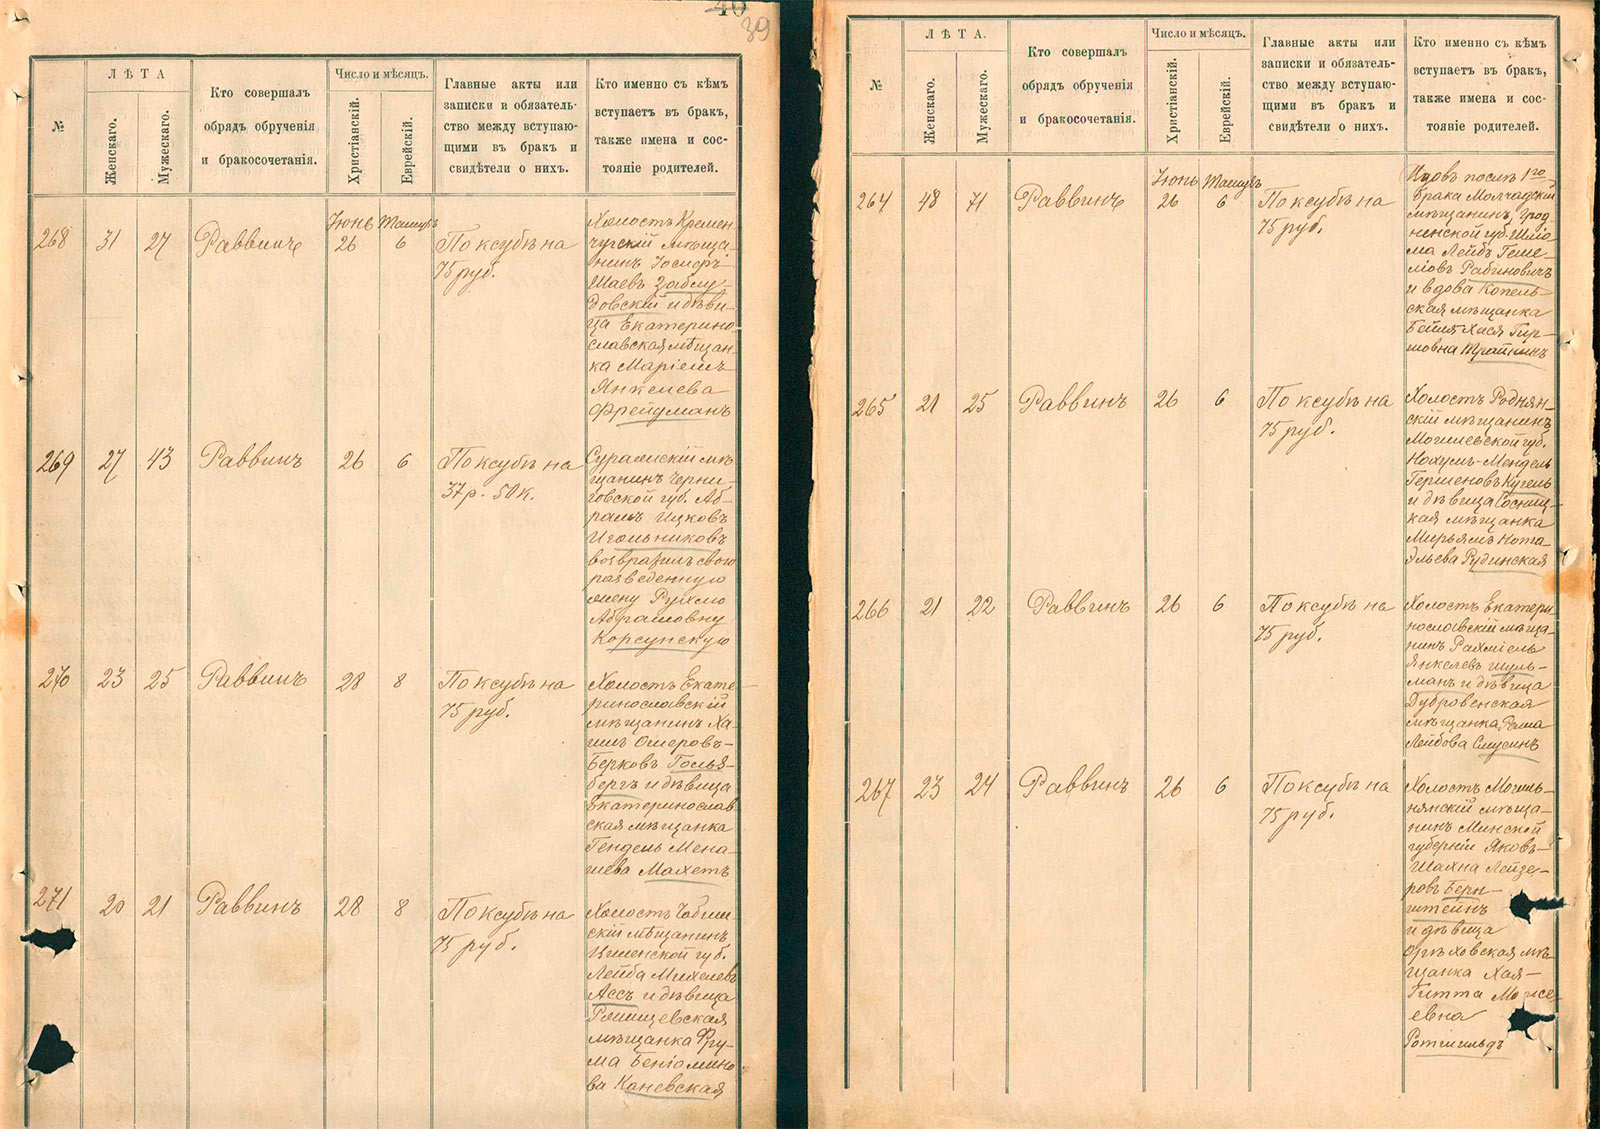 40
39
ЛѢТА
Число и мѣсяцъ.
№
Женскаго.
Мужескаго.
Кто совершалъ
обрядъ обрученія
и бракосочетанія.
Христіанскій.
Еврейскій.
Главные акты или
записки и обязатель-
ство между вступаю-
щими въ бракъ и
свидѣтели о нихъ.
Кто именно съ кѣмъ
вступаетъ въ бракъ,
также имена и сос-
тояніе родителей.
268 31 27 Раввинъ
Іюнь Тамузъ
26 6
По ксубѣ на
75 руб.
Холостъ Кремен-
чугскій мѣща-
нинъ Іосифъ
Шаевъ Заблу-
довскій и дѣви-
ца Екатерино
славская мѣщан-
ка Маріемъ
Янкелева
Фрейдманъ
269 27 43 Раввинъ 26 6
По ксубѣ на
37 р. 50 к.
мѣ
щанинъ Черни-
говской губ. Аб-
рамъ Ицковъ
Игольниковъ
возвратилъ свою
разведенную
жену
Абрамовну
Корсунскую
270 23 25 Раввинъ 28 8
По ксубѣ на
75 руб.
Холостъ Екате-
ринославскій
мѣщанинъ Ха-
имъ Ошеровъ-
Берковъ Гольд-
бергъ и дѣвица
Екатеринослав
ская мѣщанка
Гендель Мена-
шева Махетъ
271 20 21 Раввинъ 28 8
По ксубѣ на
75 руб.
Холостъ
скій мѣщанинъ
Виленской губ.
Лейба Михелевъ
Ассъ и дѣвица
мѣщанка Фру-
ма Беніомино
ва Каневская
ЛѢТА.
Число и мѣсяцъ.
№
Женскаго.
Мужескаго.
Кто совершалъ
обрядъ обрученія
и бракосочетанія.
Христіанскій.
Еврейскій.
Главные акты или
записки и обязатель-
ство между вступаю-
щими въ бракъ и
свидѣтели о нихъ.
Кто именно съ кѣмъ
вступаетъ въ бракъ,
также имена и сос-
тояніе родителей.
264 48 71 Раввинъ
Іюнь Тамузъ
26 6
По ксубѣ на
75 руб.
Вдовъ послѣ 1го
брака Молчадскій
мѣщанинъ Грод-
ненской губ. Шлio-
ма Лейбъ
Рабиновичъ
и вдова Копель-
ская мѣщанка
Хася Гир-
шовна
265 21 25 Раввинъ 26 6
По ксубѣ на
75 руб.
Холостъ Роднян-
скій мѣщанинъ
Могилевской губ.
Нохумъ-Мендель
Гершеновъ Кугель
и дѣвица Сосниц-
кая мѣщанка
Мирьямъ Нота-
Эльева Рудинская
266 21 22 Раввинъ 26 6
По ксубѣ на
75 руб.
Холостъ Екатери
нославскій мѣща-
нинъ Рахміель
Янкелевъ Шуль-
манъ и дѣвица
Дубровенская
мѣщанка
Лейбова
267 23 24 Раввинъ 26 6
По ксубѣ на
75 руб.
Холостъ Могиль-
нянскій мѣща-
нинъ Минской
губерніи Яковъ-
Шахна Лейзе-
ровъ Берн-
штейнъ
и дѣвица
Орѣховская мѣ-
щанка Хая-
Гитта Моисе-
евна
Ротшильдъ